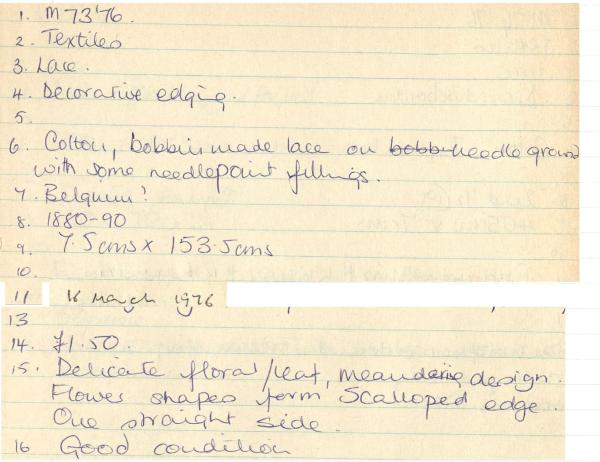 1. M73'76.
2. Textiles
3. Lace.
4. Decorative edging.
5.
6. Cotton, bobbin made lace on bobb needle ground
with some needlepoint fillings.
7. Belgium?
8. 1880-90
9. 7.5cms x 153.5cms
10.
11 16 March 1976
13
14. £1.50.
15. Delicate floral/leaf, meandering design.
Flower shapes form Scalloped edge.
One straight side.
16 Good condition